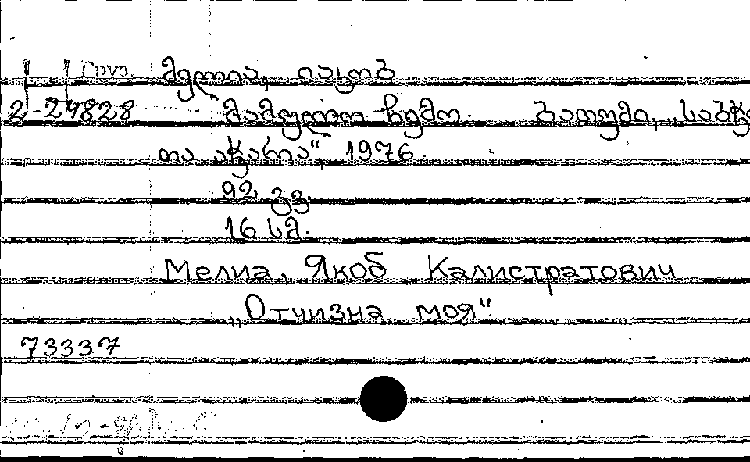 Груз. მელია, იაკობ
2-29828 მამულო ჩემო. ბათუმი, „საბჭო
თა აჭარა", 1976.
92 გვ.
16 სმ.
Мелиа, Якоб Калистратович
„Отчизна моя"
73337